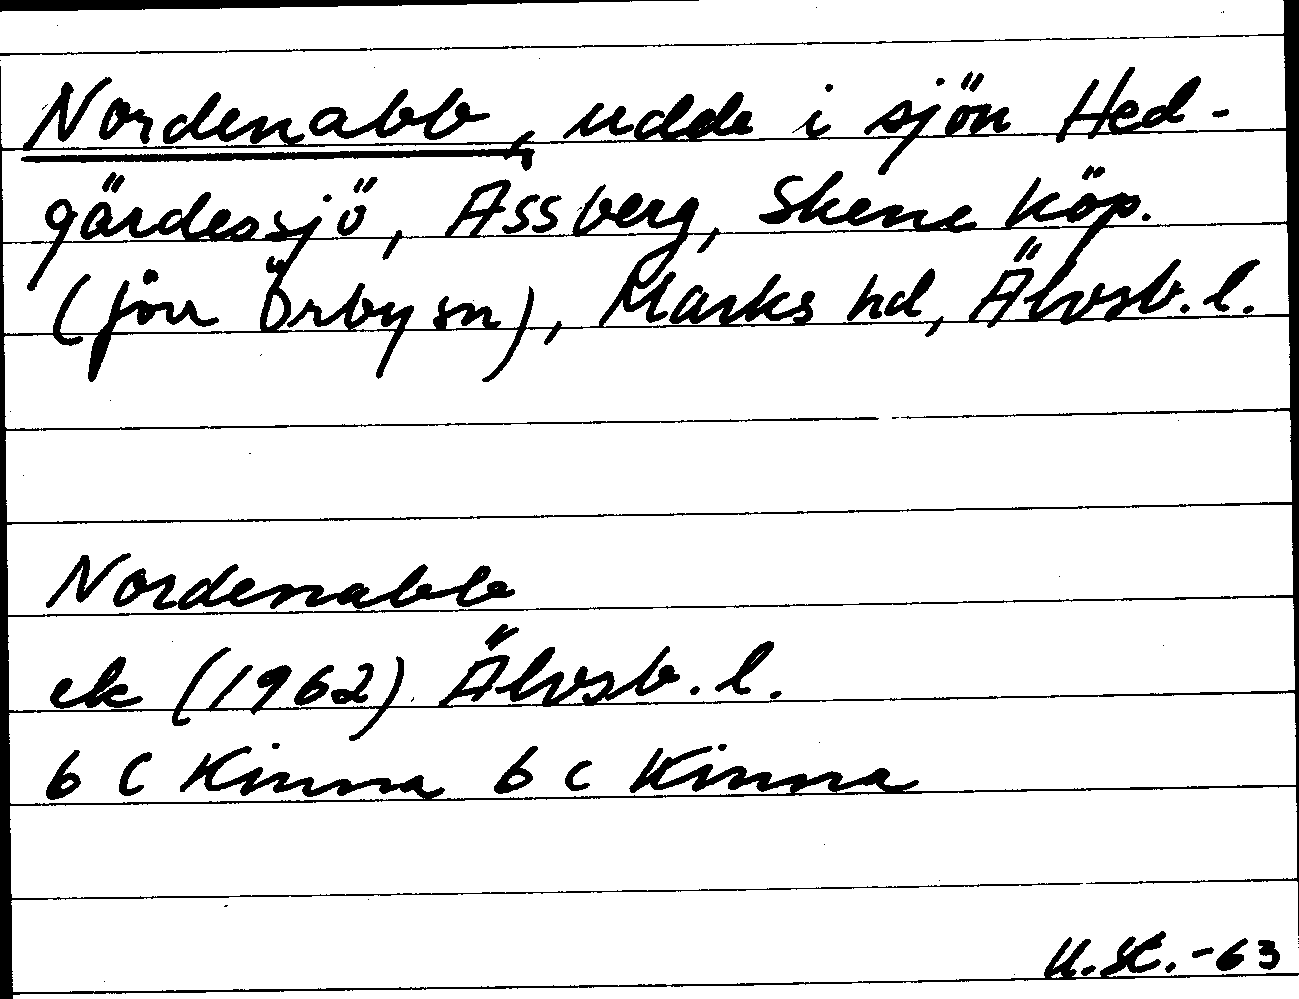 Nordenabb, udde i sjön Hed-
gärdessjö, Assberg, Skene köp.
(förr Örby sn), Marks hd, Älvsb. l.
Nordenabb
ek (1962) Älvsb. l.
6 C Kinna 6 c Kinna
U.St.-63